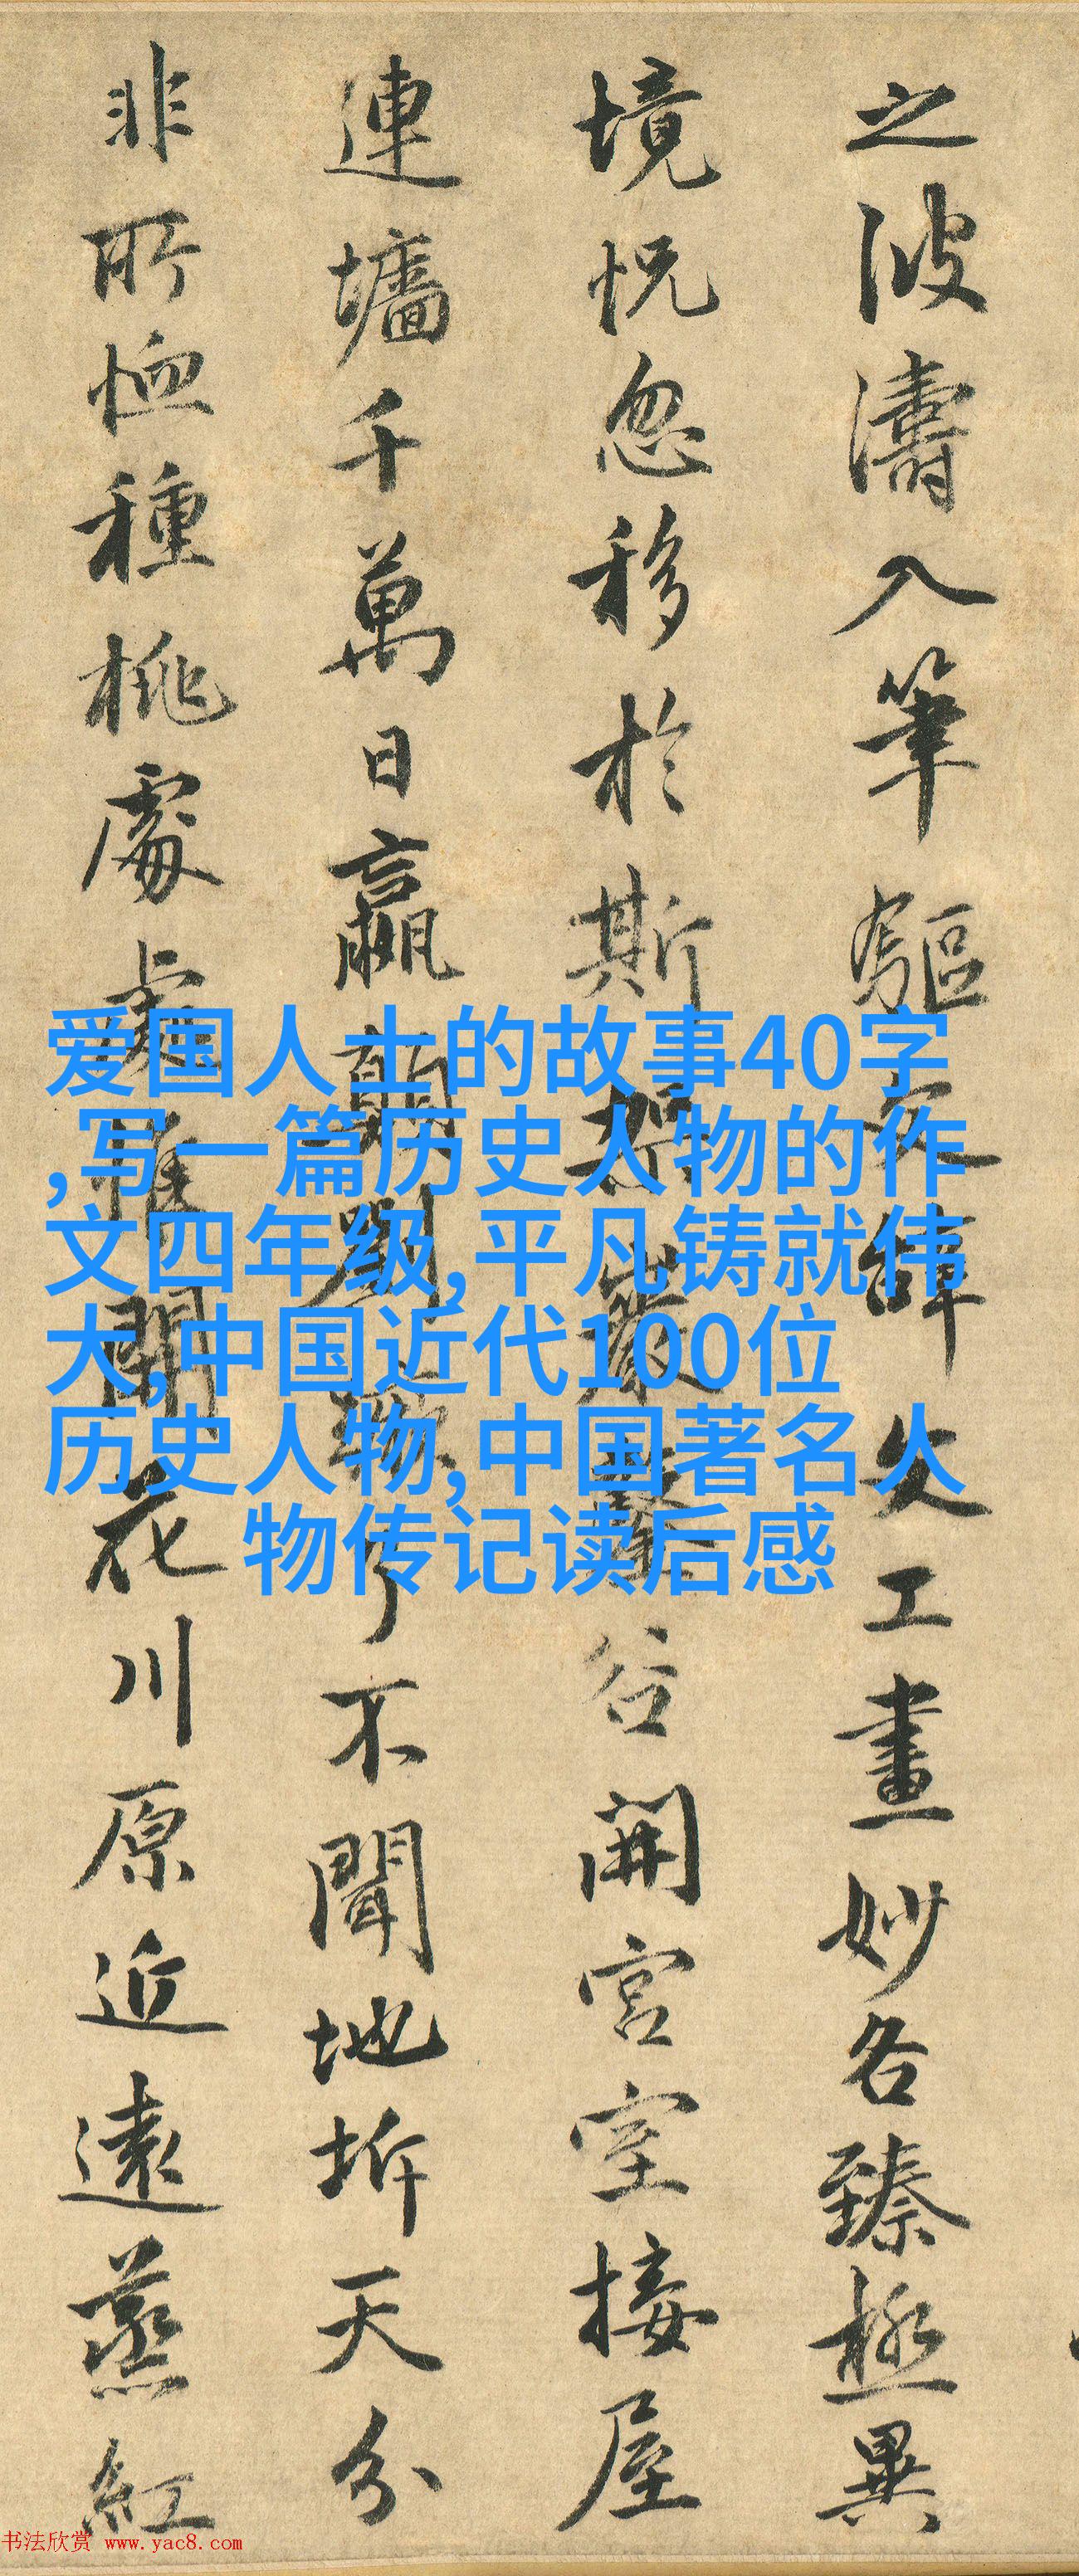 之波濤入筆驅文辭文工畫妙各臻極異
境怳忽移於斯架巖鑿谷開宮室接屋
連墻千萬日嬴顛劉蹶了不聞地坼天分
非所恤種桃處處惟開花川原近遠蒸紅
爱国人士的故事40字
,写一篇历史人物的作
文四年级,平凡铸就伟
大,中国近代100位
历史人物,中国著名人
物传记读后感
书法欣赏 www.yac8.com